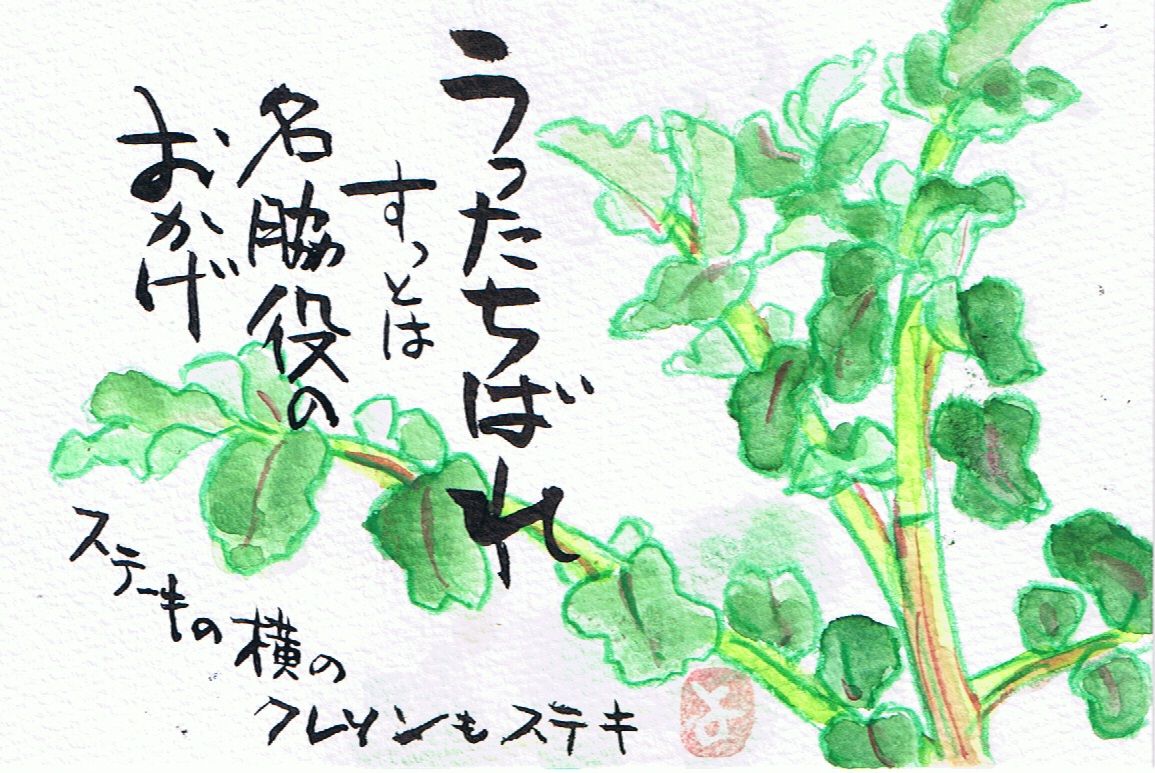 うったちばれ
すっとは
名脇役の
おかげ
ステーキの横の
クレソンもステキ
よ